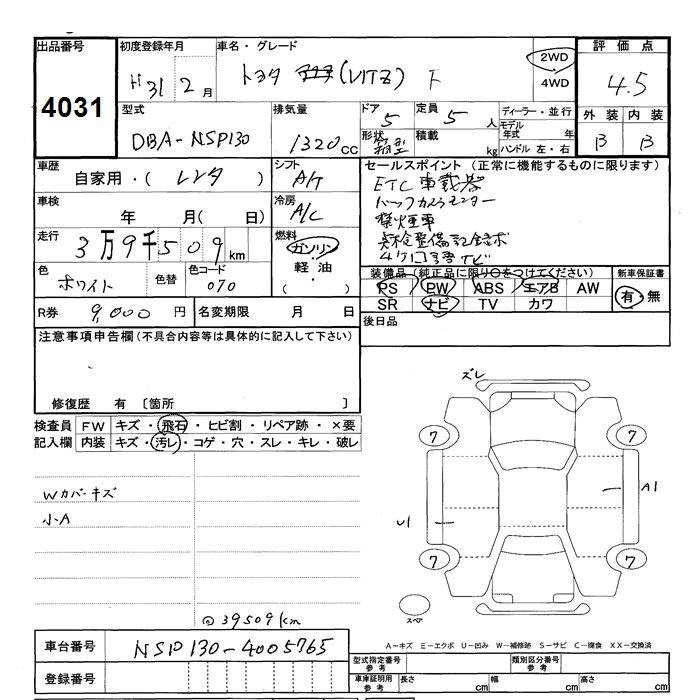 出品番号 初度登録年月 車名・グレード 評価点
4031 H31 2月 トヨタ (VITZ) F 2WD 4WD 4.5
型式 排気量 ドア 定員 ディーラー・並行 外装 内装
DBA-NSP130 1320cc 5 5人 モデル年式 年 B B
形状 箱型 積載 kg ハンドル 左・右
車歴 シフト セールスポイント (正常に機能するものに限ります)
自家用・( レンタ ) A/T ETC 車載器
車検 冷房 バックカメラモニター
年 月(日) A/C 禁煙車
走行 燃料 点検整備記録簿
3万9千509km ガソリン 軽油 ( ・ )
色 色替 色コード 装備品 (純正品に限り○をつけてください) 新車保証書
ホワイト 070 PS PW ABS エアB AW 有・無
R券 9,000円 名変期限 月 日 SR ナビ TV カワ
後日品
注意事項申告欄(不具合内容等は具体的に記入して下さい)
修復歴 有 〔箇所 〕
検査員 FW キズ・飛石・ヒビ割・リペア跡・×要
記入欄 内装 キズ・汚レ・コゲ・穴・スレ・キレ・破レ
ズレ
7 7
Wカバーキズ
小A
A1
U1
7 7
スペア
◎39509km
A-キズ E-エクボ U-凹み W-補修跡 S-サビ C-腐食 XX-交換済
車台番号 NSP130-4005765
型式指定番号 参考 類別区分番号 参考
登録番号 車庫証明用 参考 長さ cm 幅 cm 高さ cm